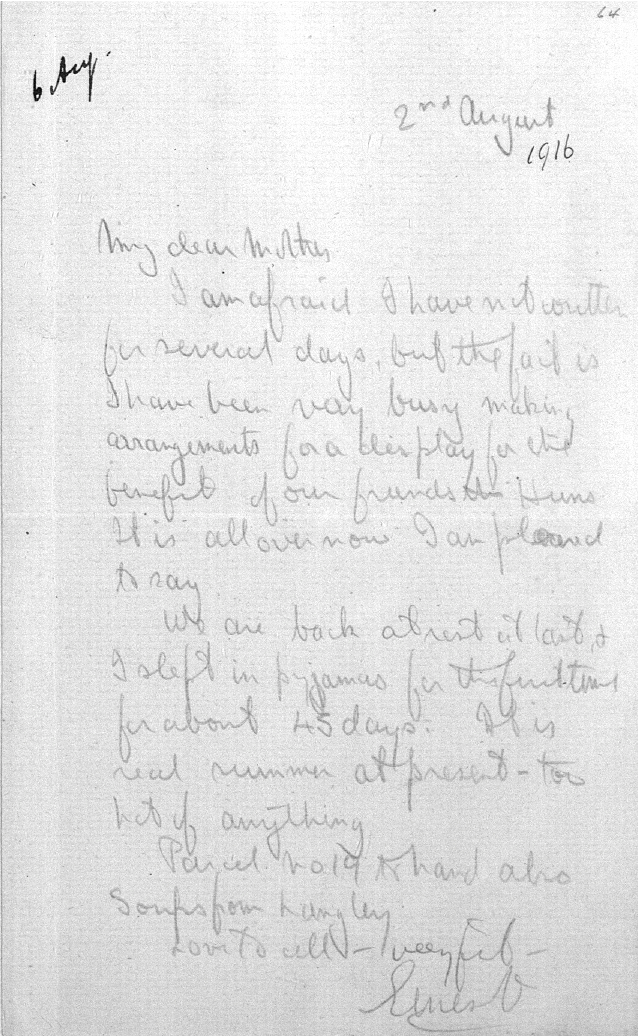 64
6 Aug.
2nd August
1916
My dear Mother
I am afraid I have not written
for several days, but the fact is
I have been very busy making
arrangements for a display for the
benefit of our friends the Huns
It is all over now I am pleased
to say
We are back at rest at last, &
I slept in pyjamas for the first time
for about 45 days. It is
real summer at present - too
hot if anything
Parcel No 19 to hand also
Soups from Langley
Love to all - very fit -
Ernest